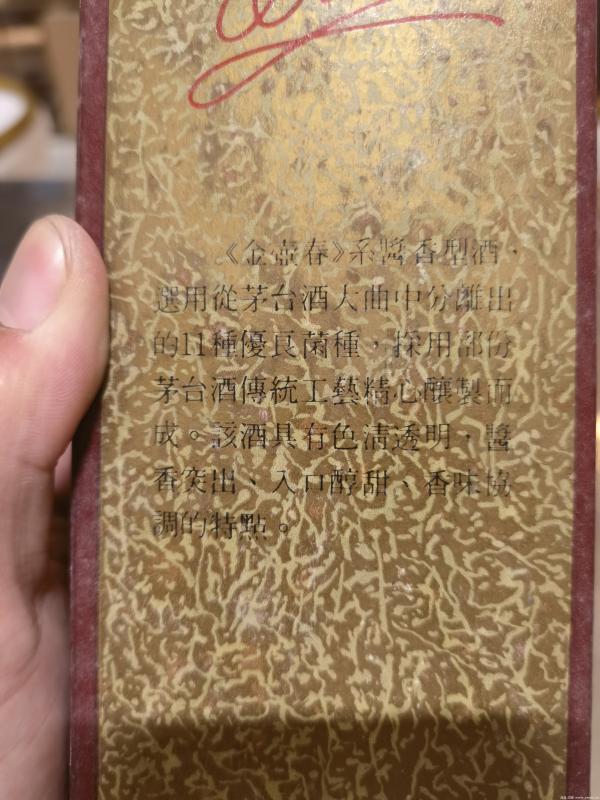 《金壺春》系醬香型酒，
選用從茅台酒大曲中分離出
的11種優良菌種，採用部份
茅台酒傳統工藝精心釀製而
成。該酒具有色清透明，醬
香突出、入口醇甜、香味協
調的特點。